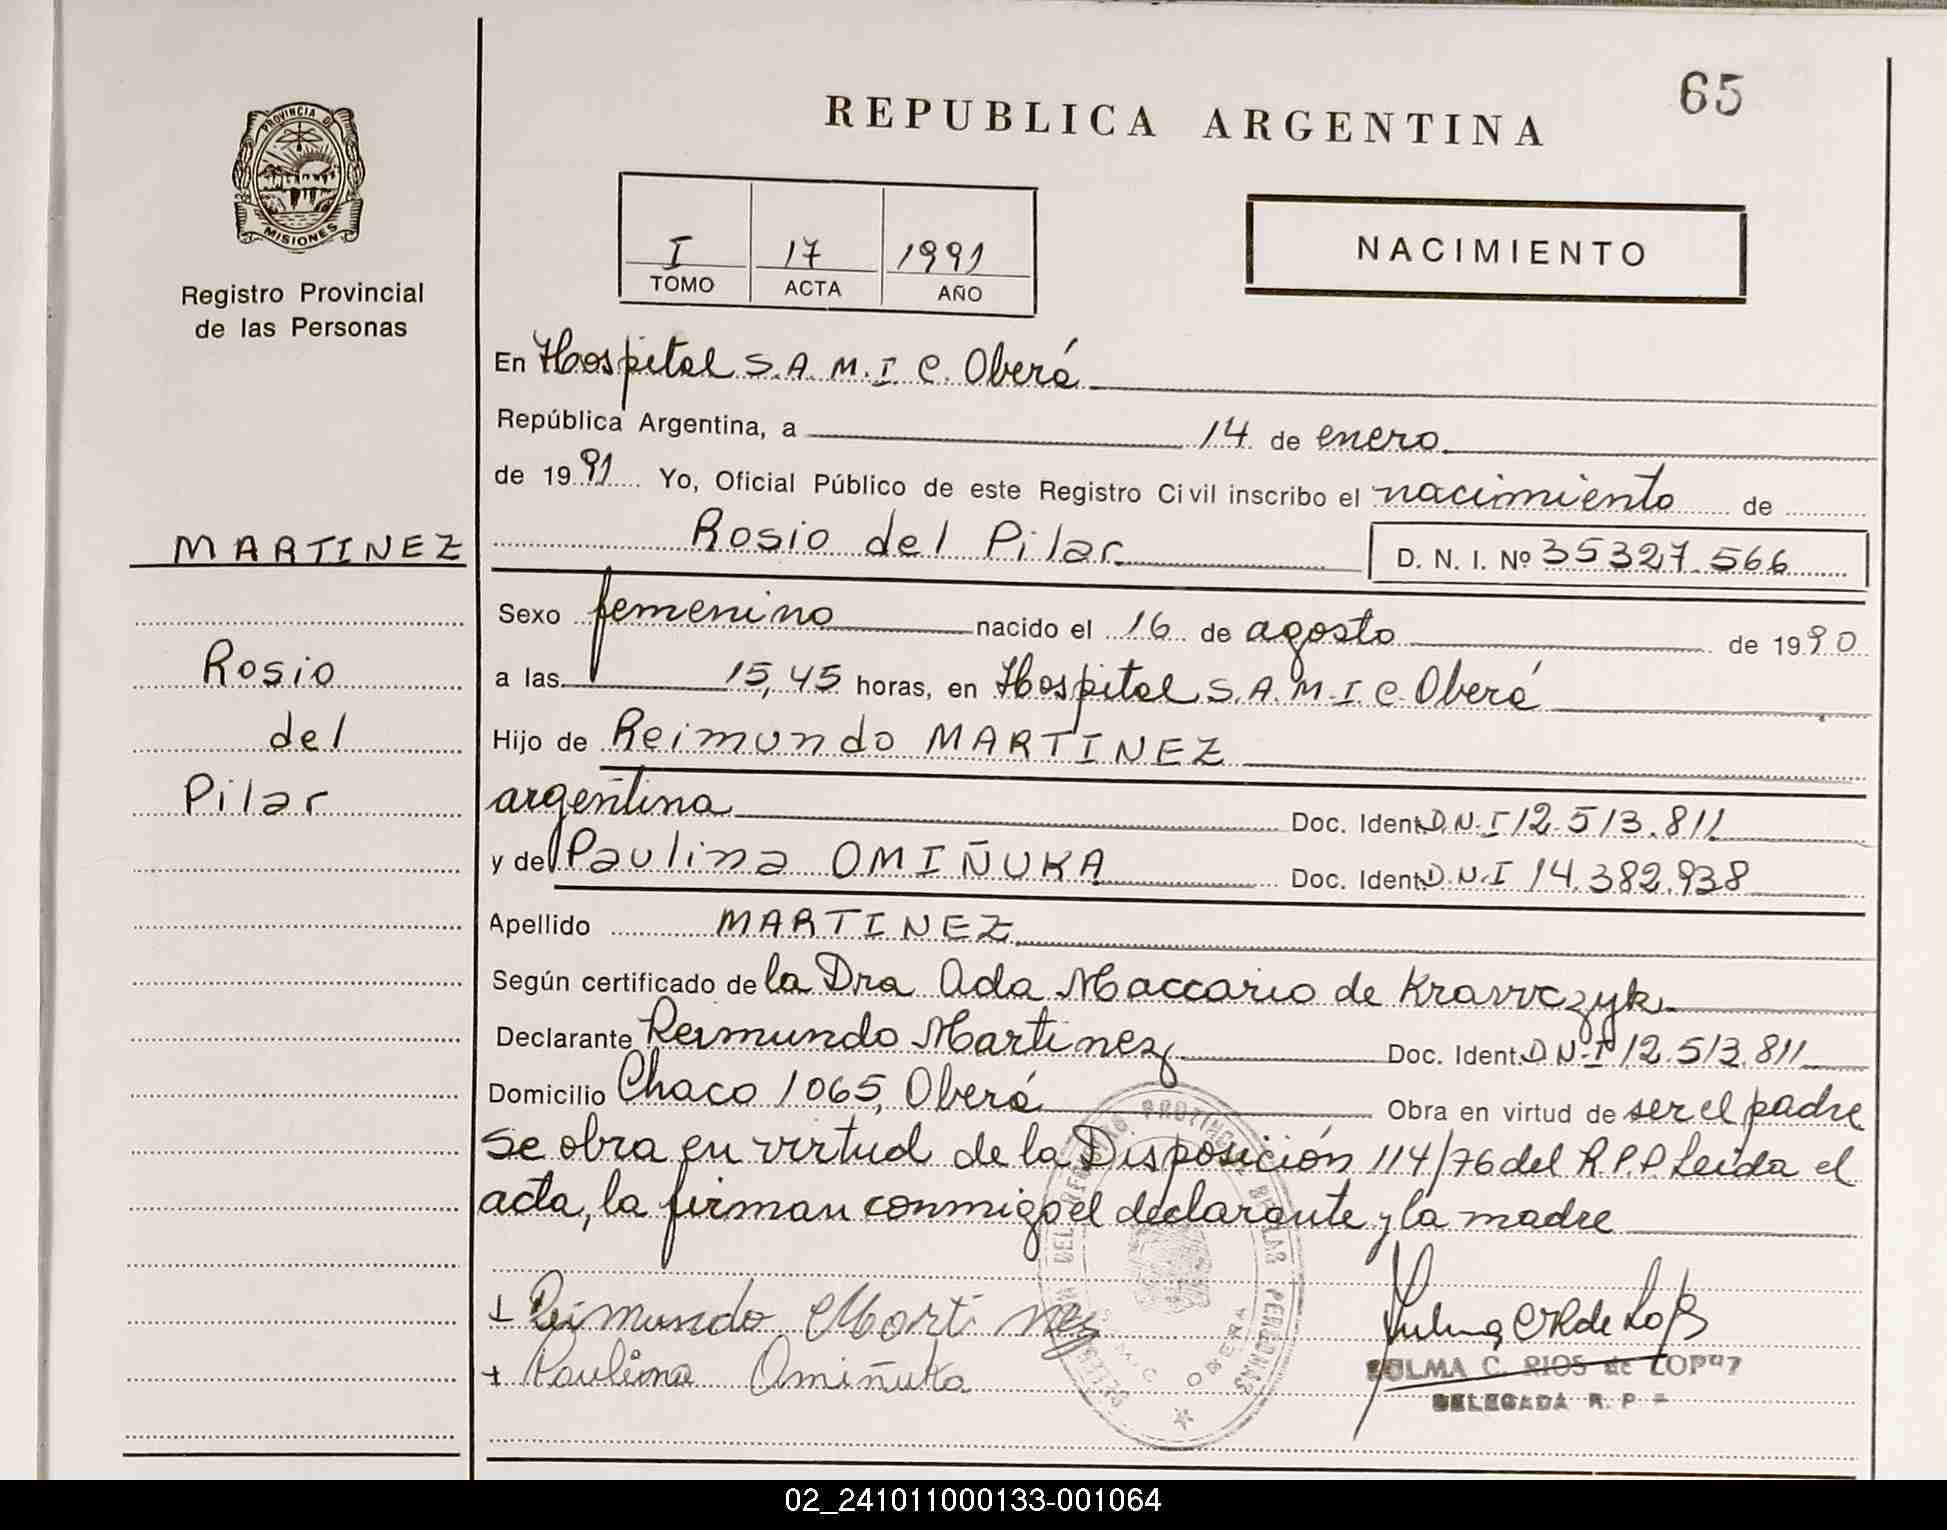 65
REPUBLICA ARGENTINA
PROVINCIA DE
MISIONES
Registro Provincial
de las Personas
I 17 1991
TOMO ACTA AÑO
NACIMIENTO
En Hospital S.A.M.I.C. Oberá
República Argentina, a 14 de enero
de 1991 Yo, Oficial Público de este Registro Civil inscribo el nacimiento de
MARTINEZ
Rosio del Pilar D. N. I. Nº 35327.566
Sexo femenino nacido el 16 de agosto de 1990
Rosio
a las 15,45 horas, en Hospital S.A.M.I.C. Oberá
del
Hijo de Reimundo MARTINEZ
Pilar
argentina Doc. Ident. D.N.I 12.513.811
y de Paulina OMIÑUKA Doc. Ident. D.N.I 14.382.938
Apellido MARTINEZ
Según certificado de la Dra Ada Maccario de Krawczyk
Declarante Reimundo Martinez Doc. Ident. D.N.I 12.513.811
Domicilio Chaco 1065, Oberá Obra en virtud de ser el padre
se obra en virtud de la Disposición 114/76 del R.P.P Leida el
acta, la firman conmigo el declarante y la madre
+ Reimundo Martinez
+ Paulina Omiñuka
ZULMA C. RIOS de LOPEZ
DELEGADA R. P.
OBERA
02_241011000133-001064